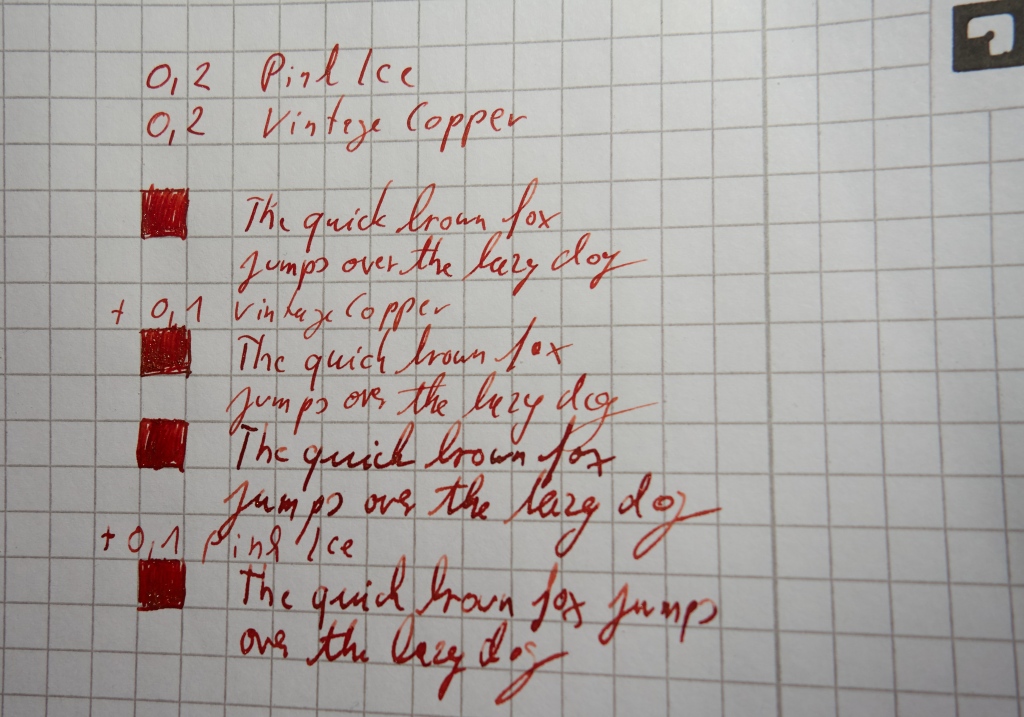 0,2 Pink Ice
0,2 Vintage Copper
The quick brown fox
jumps over the lazy dog
+ 0,1 Vintage Copper
The quick brown fox
jumps over the lazy dog
The quick brown fox
jumps over the lazy dog
+ 0,1 Pink Ice
The quick brown fox jumps
over the lazy dog